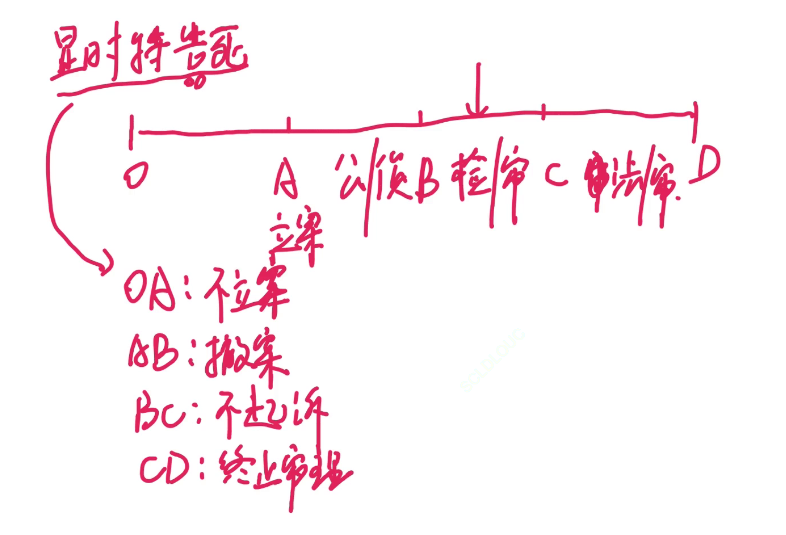 显时特告死
O A 公/侦 B 检/审 C 法/审. D
立案
OA:不立案
AB:撤案
BC:不起诉
CD:终止审理